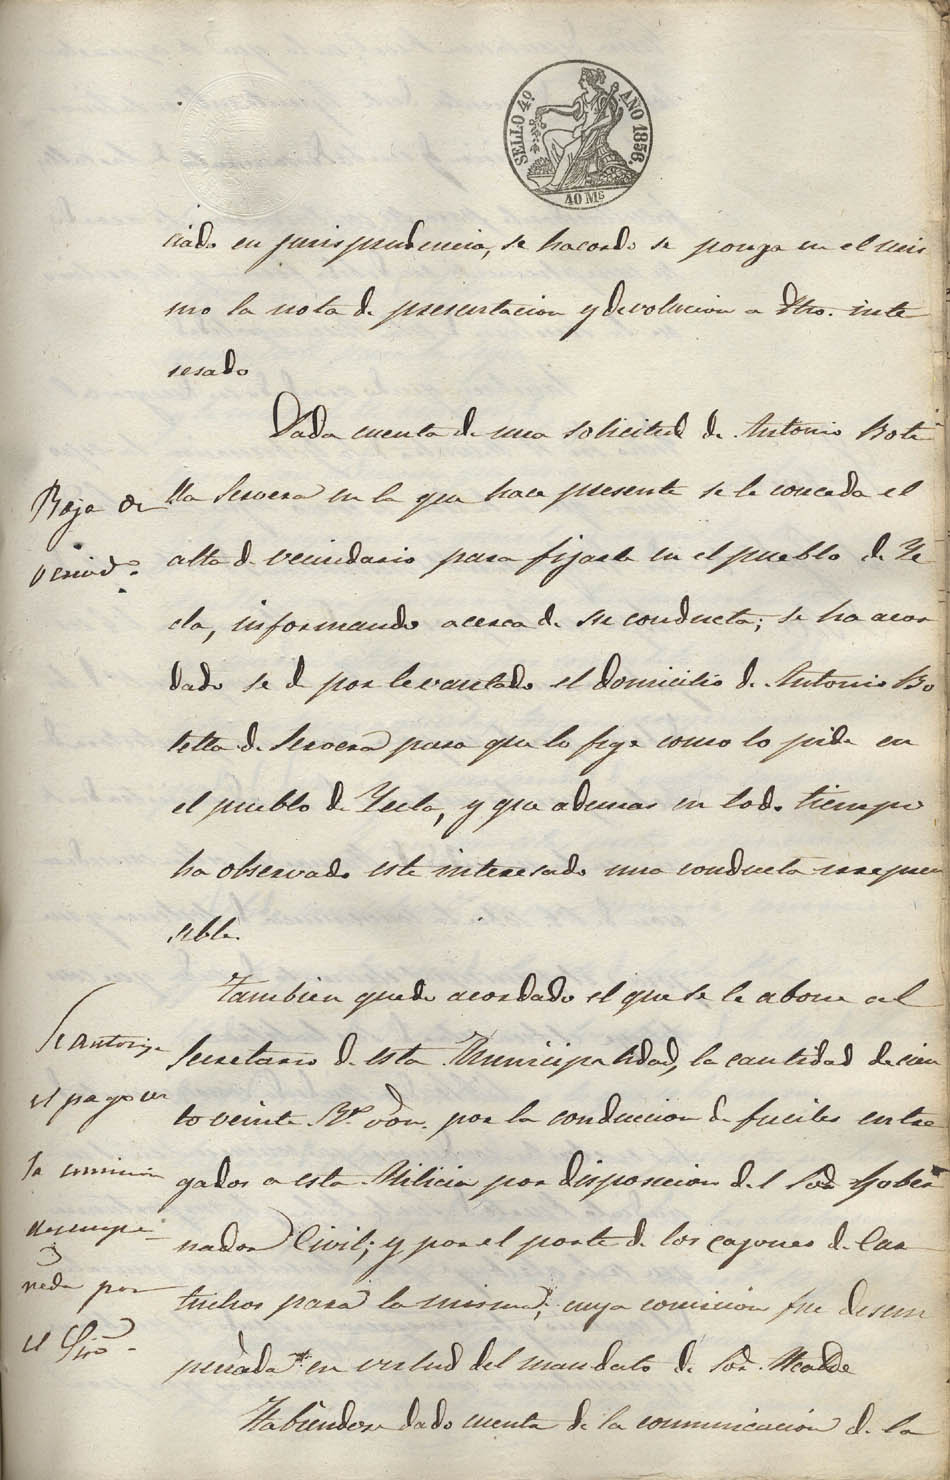 SELLO 4º AÑO 1856.
40 Ms
ciado en jurisprudencia, se ha cordo se ponga en el mis
mo la nota de presentacion y devolucion a dho. inte
resado
Dada cuenta de una solicitud de Antonio Bote
Baja de
vecind.º
lla Servera en la que hace presente se le conceda el
alta de vecindario para fijarla en el pueblo de Ye
cla, informando acerca de su conducta; se ha acor
dado se dé por levantado el domicilio de Antonio Bo
tella de Servera para que lo fije como lo pide en
el pueblo de Yecla, y que ademas en todo tiempo
ha observado este interesado una conducta irrepren
sible.
Tambien quedo acordado el que se le abone al
Se autoriza
el pago de
la comision
desempe
ñada por
el Srio.
Secretario de esta Municipalidad, la cantidad de cien
to veinte Rs. von. por la conduccion de fuciles entre
gados a esta Milicia por disposicion del Sor. Gober
nador Civil; y por el porte de los cajones de Car
tuchos para la misma; cuya comision fue desem
peñada en virtud del mandato de Sor. Alcalde
Habiendose dado cuenta de la comunicacion de la